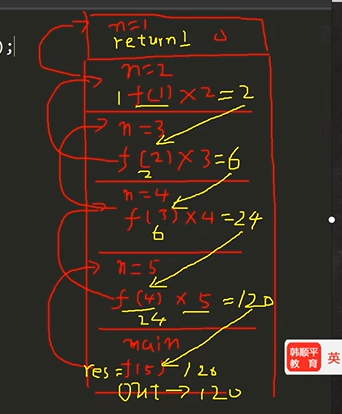 );
n=1
return1
n=2
1 f(1)×2=2
n=3
f(2)×3=6
2
n=4
f(3)×4=24
6
n=5
f(4)×5=120
24
main
res=f(5) 120
out→120
韩顺平
教育